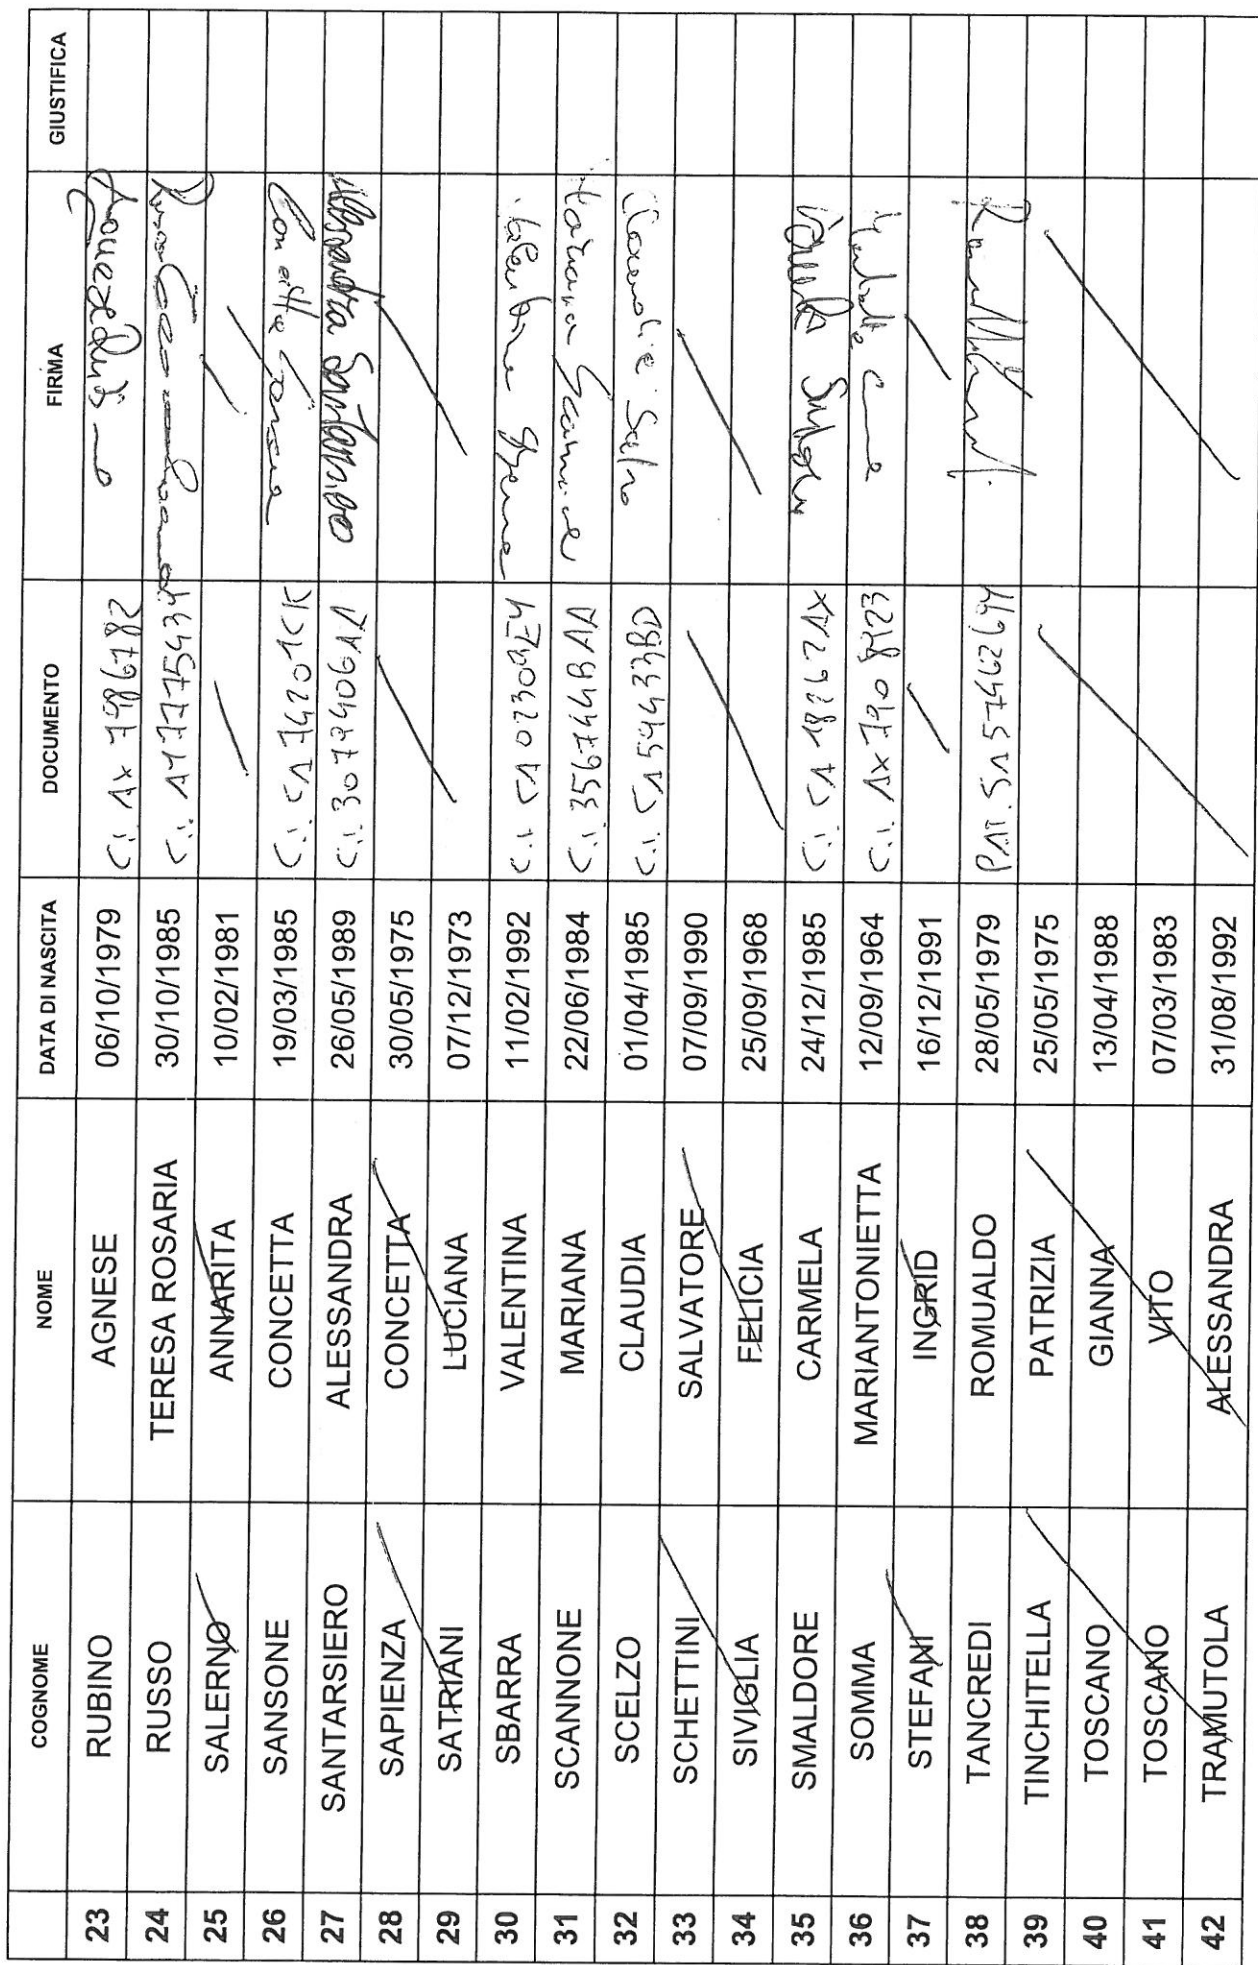 COGNOME NOME DATA DI NASCITA DOCUMENTO FIRMA GIUSTIFICA
23 RUBINO AGNESE 06/10/1979 C.I. AX 7986782
24 RUSSO TERESA ROSARIA 30/10/1985 C.I. AY7775434
25 SALERNO ANNARITA 10/02/1981
26 SANSONE CONCETTA 19/03/1985 C.I. CA 74201CK Concetta Sansone
27 SANTARSIERO ALESSANDRA 26/05/1989 C.I. 3079406AA Alessandra Santarsiero
28 SAPIENZA CONCETTA 30/05/1975
29 SATRIANI LUCIANA 07/12/1973
30 SBARRA VALENTINA 11/02/1992 C.I. CA02309EY Valentina Sbarra
31 SCANNONE MARIANA 22/06/1984 C.I. 3567444BAA Mariana Scannone
32 SCELZO CLAUDIA 01/04/1985 C.I. CA59433BD Claudia Scelzo
33 SCHETTINI SALVATORE 07/09/1990
34 SIVIGLIA FELICIA 25/09/1968
35 SMALDORE CARMELA 24/12/1985 C.I. CA 18262AX
36 SOMMA MARIANTONIETTA 12/09/1964 C.I. AX 7908923
37 STEFANI INGRID 16/12/1991
38 TANCREDI ROMUALDO 28/05/1979 PAT. SA5746269Y
39 TINCHITELLA PATRIZIA 25/05/1975
40 TOSCANO GIANNA 13/04/1988
41 TOSCANO VITO 07/03/1983
42 TRAMUTOLA ALESSANDRA 31/08/1992